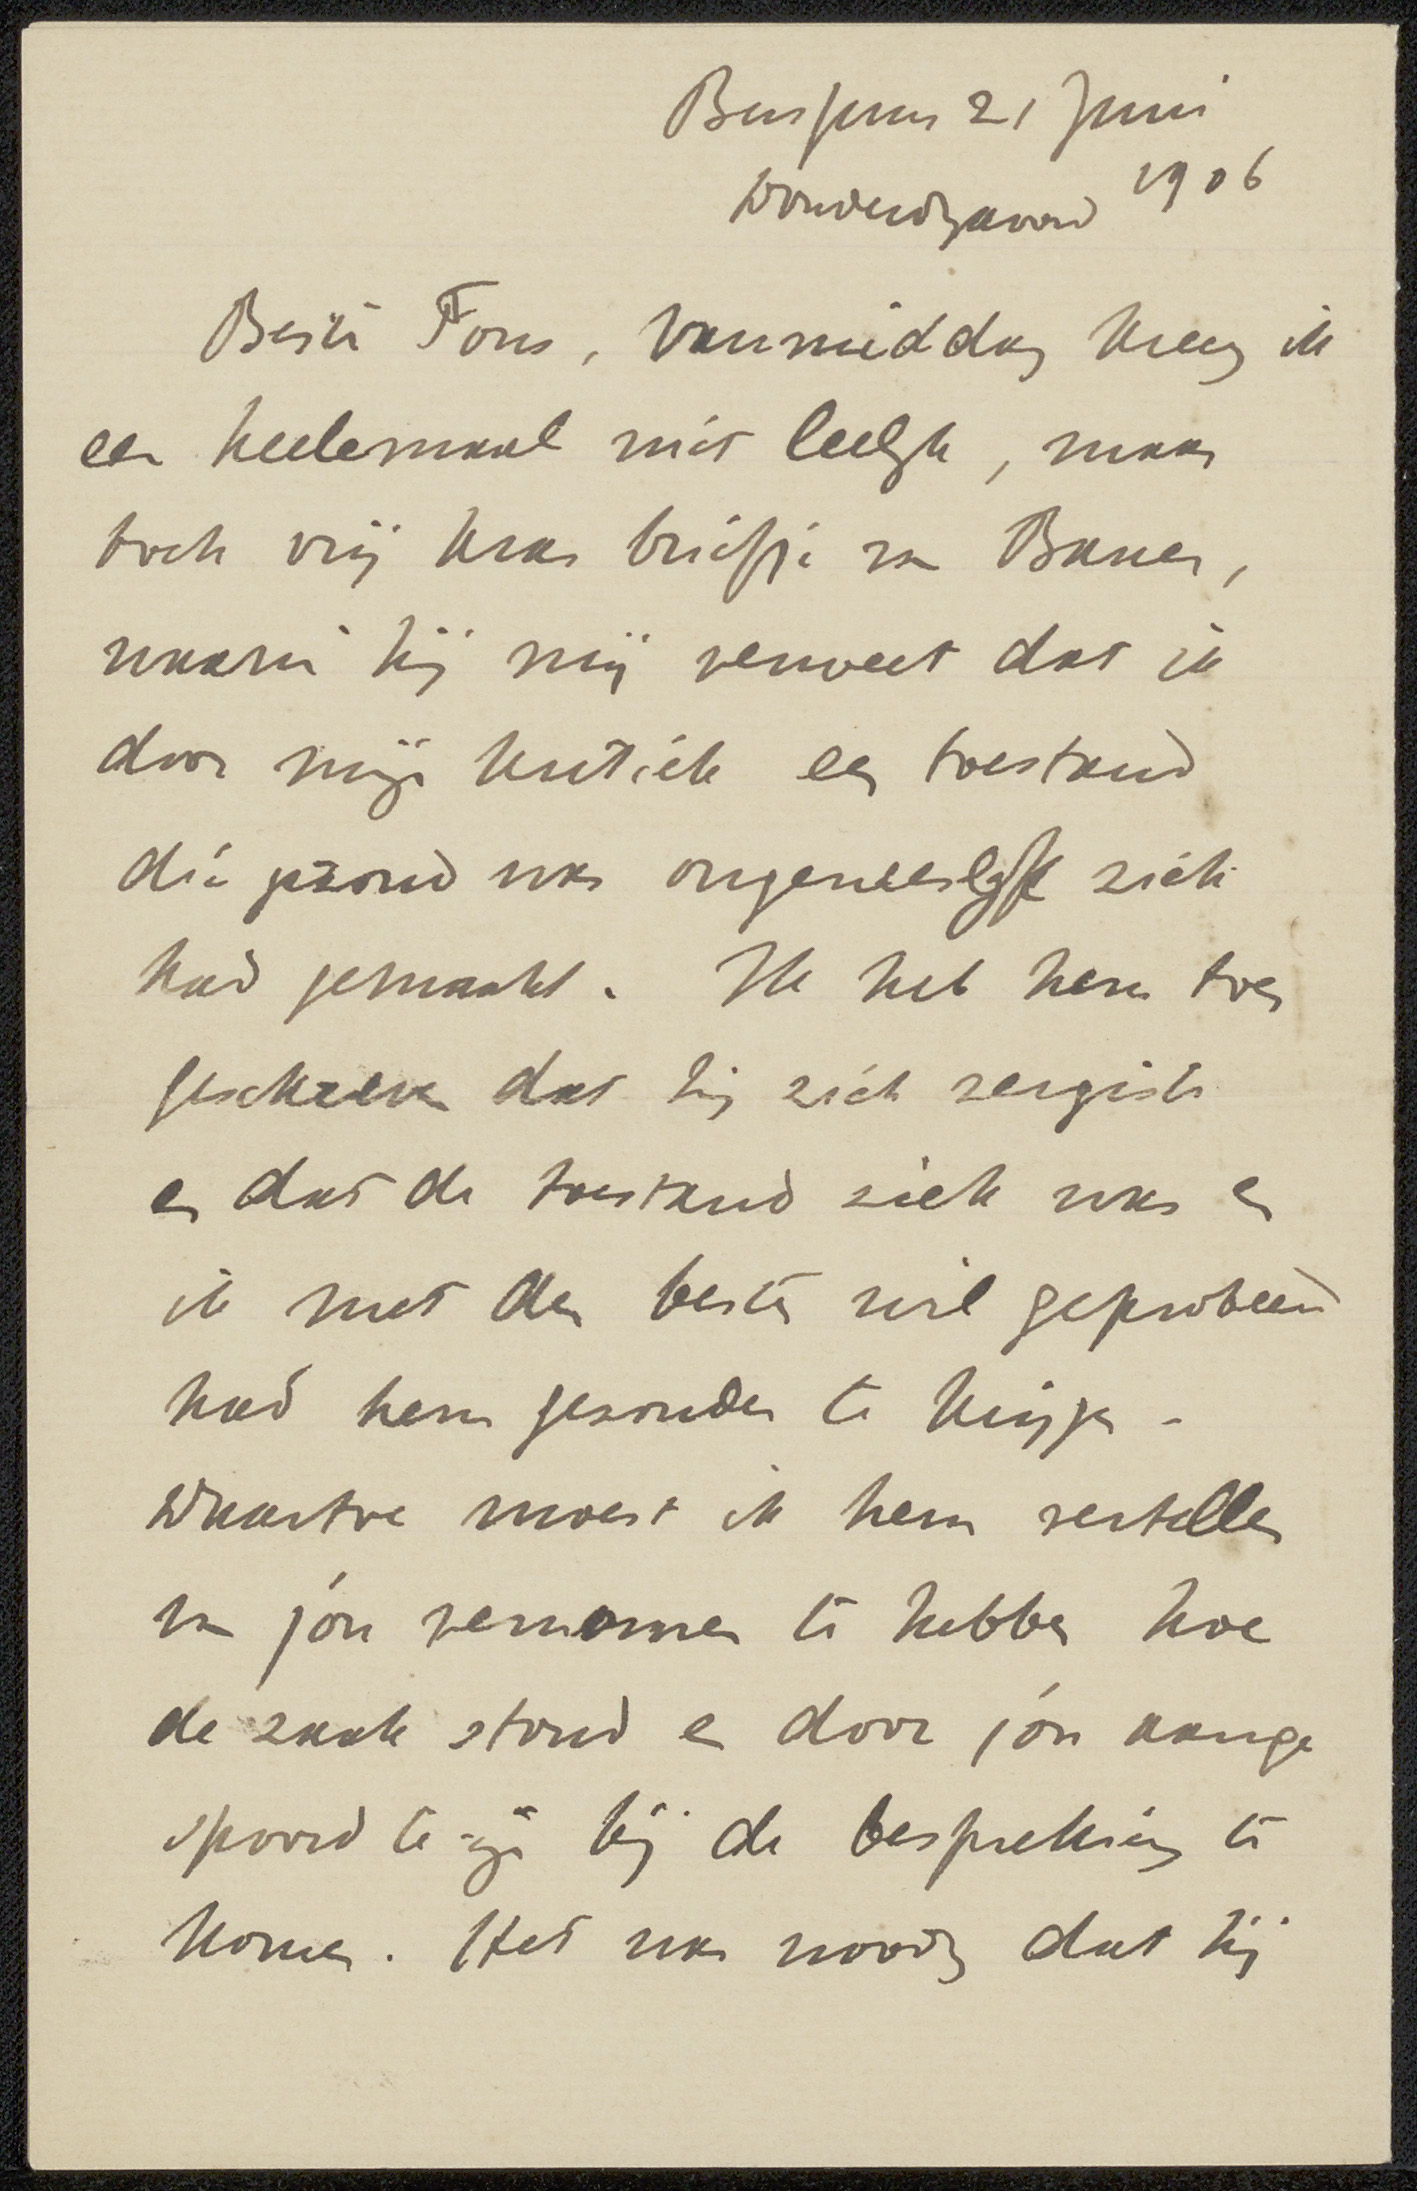 Bussum 21 Juni
1906
Donderdagavond
Beste Fons, Vanmiddag kreeg ik
een heelemaal niet leelijk, maar
toch vrij kras briefje van Bauer,
waarin hij mij verweet dat ik
door mijn kritiek een toestand
die gezond was ongeneeslijk ziek
had gemaakt. Ik heb hem toen
geschreven dat hij zich vergiste
en dat de toestand ziek was en
ik met den besten wil geprobeerd
had hem gezonder te krijgen -
Daartoe moest ik hem vertellen
van jóu vernomen te hebben hoe
de zaak stond en door jóu aange
spoord te zijn bij de bespreking te
komen. Het was noodig dat hij